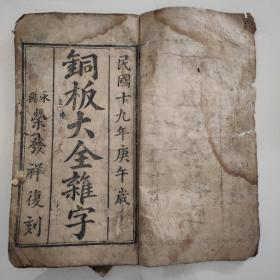 民國十九年庚午歲
銅板大全雜字
永興
榮發祥復刻